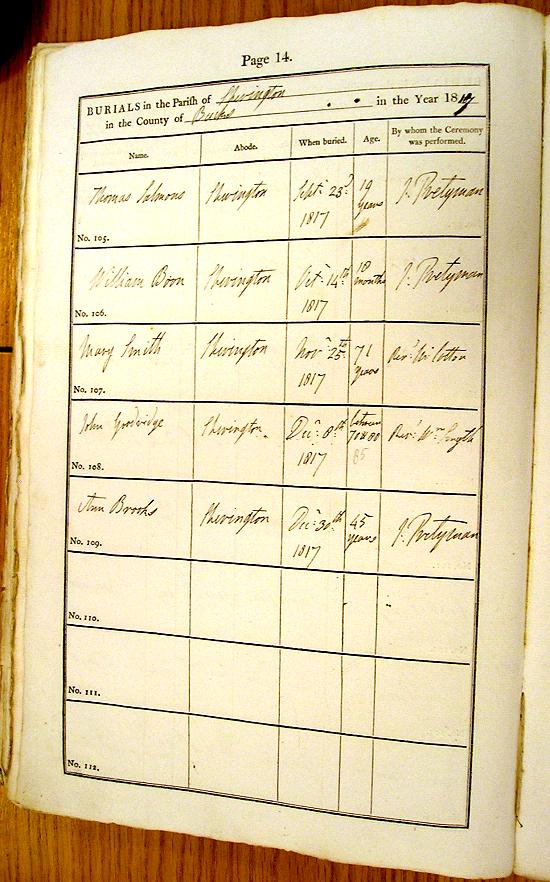 Page 14.
BURIALS in the Parish of Sherington
in the County of Bucks in the Year 1817
Name.
Abode.
When buried.
Age.
By whom the Ceremony
was performed.
Thomas Salmons
Sherington
Sept. 23d
1817
19
years
J. Pretyman
No. 105.
William Boon
Sherington
Oct. 14th
1817
18
months
J. Pretyman
No. 106.
Mary Smith
Sherington
Novr 25th
1817
71
years
Revd Wm Cotton
No. 107.
John Goodridge
Sherington
Decr 8th
1817
between
70 & 80
85
Revd Wm Smyth
No. 108.
Ann Brooks
Sherington
Decr 30th
1817
45
years
J. Pretyman
No. 109.
No. 110.
No. 111.
No. 112.